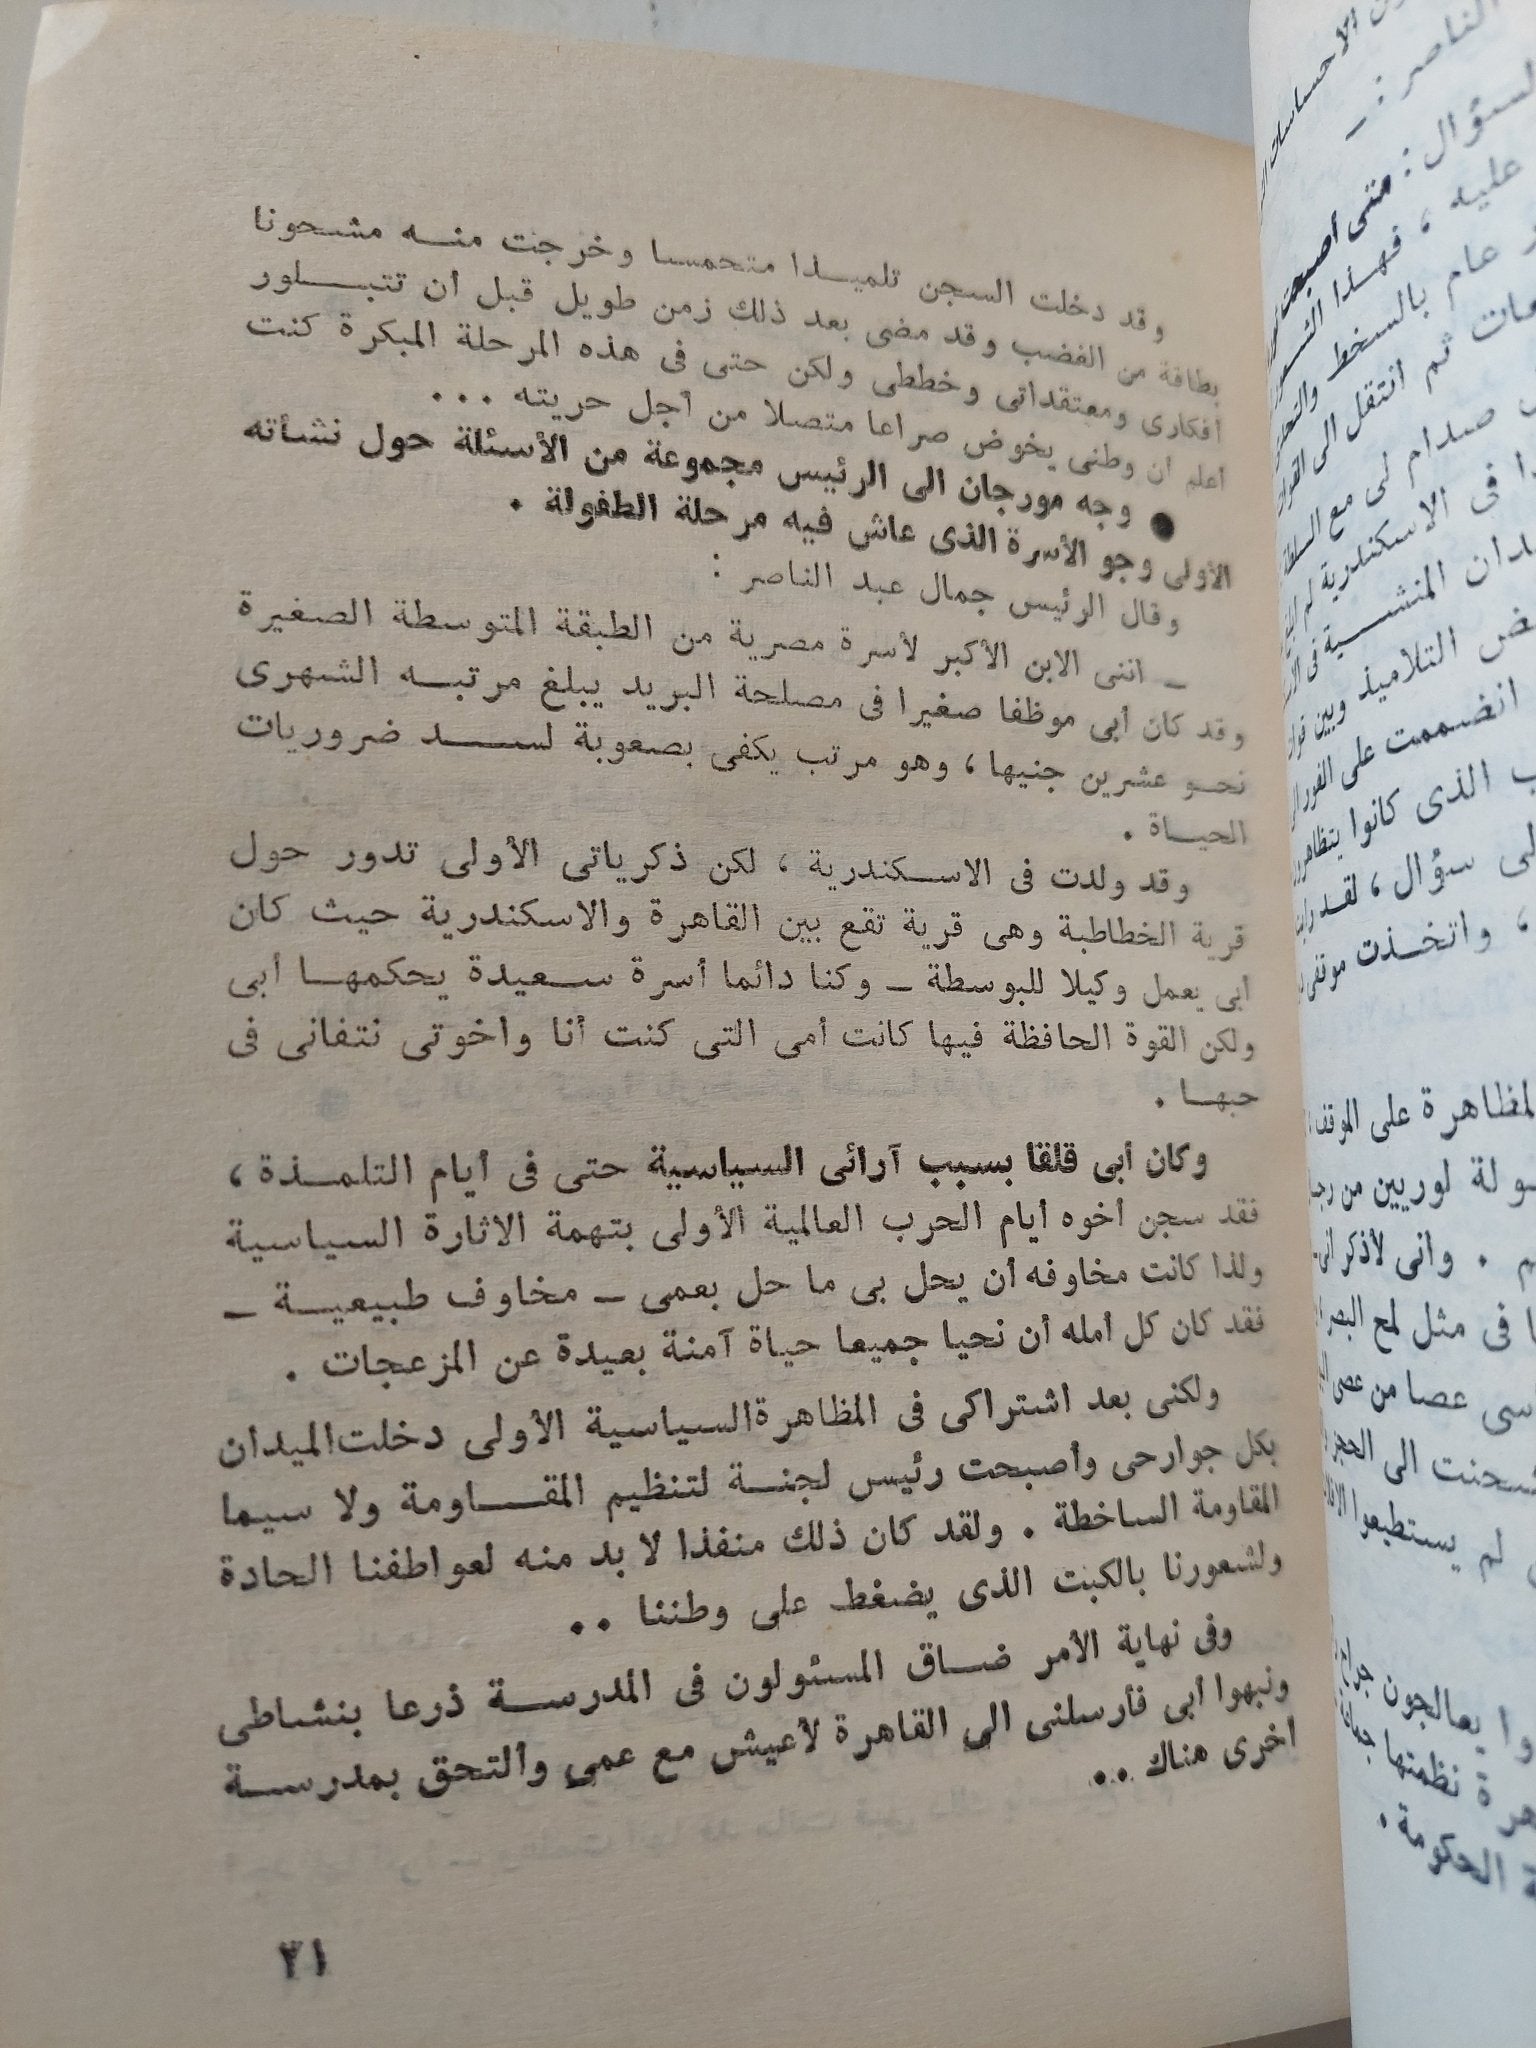 وقد دخلت السجن تلميذا متحمسا وخرجت منه مشحونا
بطاقة من الغضب وقد مضى بعد ذلك زمن طويل قبل أن تتبلور
أفكارى ومعتقداتى وخططى ولكن حتى فى هذه المرحلة المبكرة كنت
أعلم أن وطنى يخوض صراعا متصلا من أجل حريته ...
● وجه مورجان الى الرئيس مجموعة من الأسئلة حول نشأته
الأولى وجو الأسرة الذى عاش فيه مرحلة الطفولة .
وقال الرئيس جمال عبد الناصر :
ـ اننى الابن الأكبر لأسرة مصرية من الطبقة المتوسطة الصغيرة
وقد كان أبى موظفا صغيرا فى مصلحة البريد يبلغ مرتبه الشهرى
نحو عشرين جنيها ، وهو مرتب يكفى بصعوبة لسد ضروريات
الحياة .
وقد ولدت فى الاسكندرية ، لكن ذكرياتى الأولى تدور حول
قرية الخطاطبة وهى قرية تقع بين القاهرة والاسكندرية حيث كان
أبى يعمل وكيلا للبوسطة ـ وكنا دائما أسرة سعيدة يحكمها أبى
ولكن القوة الحافظة فيها كانت أمى التى كنت أنا واخوتى نتفانى فى
حبها .
وكان أبى قلقا بسبب آرائى السياسية حتى فى أيام التلمذة ،
فقد سجن أخوه أيام الحرب العالمية الأولى بتهمة الاثارة السياسية
ولذا كانت مخاوفه أن يحل بى ما حل بعمى ـ مخاوف طبيعية ـ
فقد كان كل أمله أن نحيا جميعا حياة آمنة بعيدة عن المزعجات .
ولكنى بعد اشتراكى فى المظاهرة السياسية الأولى دخلت الميدان
بكل جوارحى وأصبحت رئيس لجنة لتنظيم المقاومة ولا سيما
المقاومة الساخطة . ولقد كان ذلك منفذا لا بد منه لعواطفنا الحادة
ولشعورنا بالكبت الذى يضغط على وطننا ..
وفى نهاية الأمر ضاق المسئولون فى المدرسة ذرعا بنشاطى
ونبهوا أبى فأرسلنى الى القاهرة لأعيش مع عمى وألتحق بمدرسة
أخرى هناك ...
٢١
الناصر : ـ
السؤال : متى أصبحت
عليه ، فهذا
عام بالسخط
ثم انتقل الى
صدام لى مع السلطة
فى الاسكندرية لم
المنشية فى
التلاميذ وبين
انضممت على الفور
الذى كانوا
سؤال ، لقد
، واتخذت
على
لوريين من
. وانى لأذكر
فى مثل لمح البصر
عصا من عصى
الى الحجز
لم يستطيعوا
يعالجون
نظمتها
الحكومة .